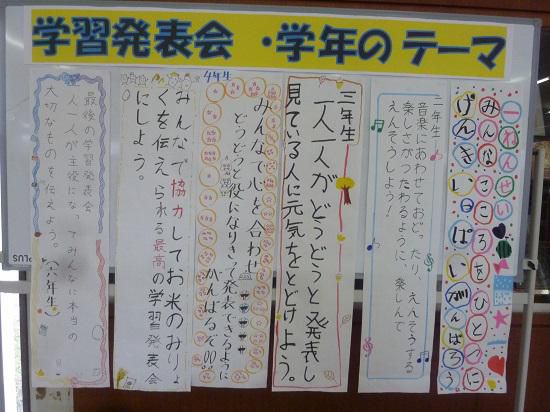 学習発表会・学年のテーマ
一ねんせい
みんなこころをひとつに
げんきいっぱいがんばろう
二年生
音楽にあわせておどったり、えんそうする
楽しさがつたわるように、楽しんで
えんそうしよう!
三年生
一人一人がどうどうと発表し
見ている人に元気をとどけよう。
4年生
みんなで心を合わせ
どうどうと役になりきって発表できるように
がんばるぞ
みんなで協力してお米のみりょ
くを伝えられる最高の学習発表会
にしよう。
最後の学習発表会
一人一人が主役になってみんなに本当の
大切なものを伝えよう。
(六年生)